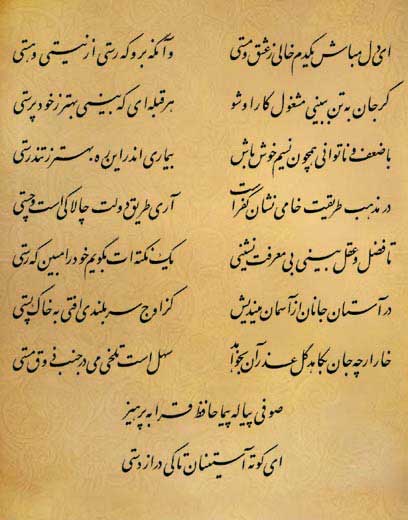 ای دل مباش یکدم خالی ز عشق و مستی وآنگه برو که رستی از نیستی و هستی
گر جان به تن ببینی مشغول کار او شو هر قبله ای که بینی بهتر ز خود پرستی
با ضعف و ناتوانی همچون نسیم خوش باش بیماری اندر این ره بهتر ز تندرستی
در مذهب طریقت خامی نشان کفر است آری طریق دولت چالاکی است و چستی
تا فضل و عقل بینی بی معرفت نشینی یک نکته ات بگویم خود را مبین که رستی
در آستان جانان از آسمان میندیش کز اوج سربلندی افتی به خاک پستی
خار ار چه جان بکاهد گل عذر آن بخواهد سهل است تلخی می در جنب ذوق مستی
صوفی پیاله پیما حافظ قرابه پرهیز
ای کوته آستینان تا کی دراز دستی